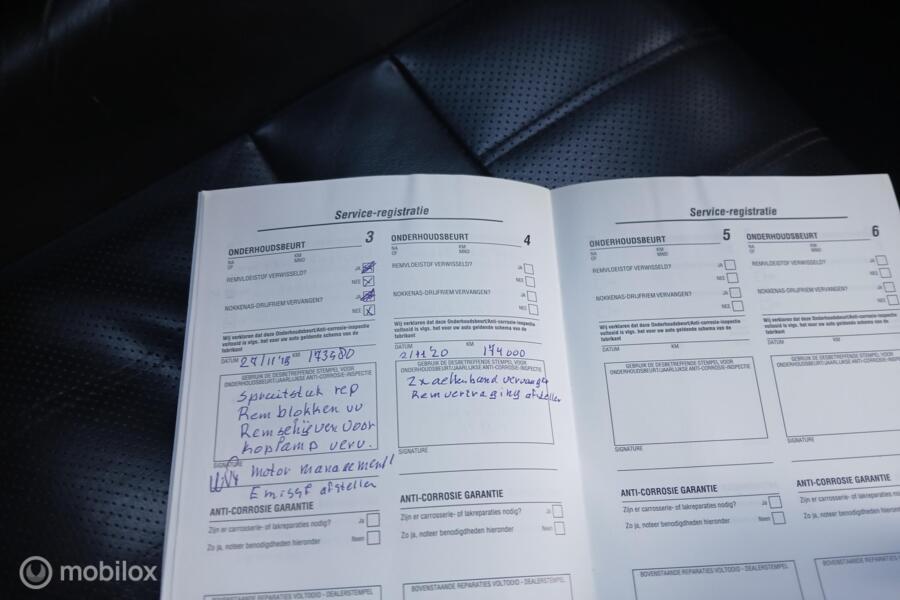 Service-registratie
ONDERHOUDSBEURT 3
NA KM
OF MND
REMVLOEISTOF VERWISSELD? JA
NEE
NOKKENAS-DRIJFRIEM VERVANGEN? JA
NEE
Wij verklaren dat deze Onderhoudsbeurt/Anti-corrosie-inspectie
volledig is vlgs. het voor uw auto geldende schema van de
fabrikant
DATUM 27/11/18 KM 173480
GEBRUIK DE DESBETREFFENDE STEMPEL VOOR
ONDERHOUDSBEURT/JAARLIJKSE ANTI-CORROSIE-INSPECTIE
Spruitstuk rep
Remblokken vv
Remschijven voor
Koplamp verv.
SIGNATURE
motor management
afstellen
ANTI-CORROSIE GARANTIE
Zijn er carrosserie- of lakreparaties nodig? Ja
Zo ja, noteer benodigdheden hieronder Nee
ONDERHOUDSBEURT 4
NA KM
OF MND
REMVLOEISTOF VERWISSELD? JA
NEE
NOKKENAS-DRIJFRIEM VERVANGEN? JA
NEE
Wij verklaren dat deze Onderhoudsbeurt/Anti-corrosie-inspectie
volledig is vlgs. het voor uw auto geldende schema van de
fabrikant
DATUM KM 174000
GEBRUIK DE DESBETREFFENDE STEMPEL VOOR
ONDERHOUDSBEURT/JAARLIJKSE ANTI-CORROSIE-INSPECTIE
2x achterband vervangen
Remvertraging afstellen
SIGNATURE
ANTI-CORROSIE GARANTIE
Zijn er carrosserie- of lakreparaties nodig? Ja
Zo ja, noteer benodigdheden hieronder Neen
BOVENSTAANDE REPARATIES VOLTOOID - DEALERSTEMPEL
BOVENSTAANDE REPARATIES VOLTOOID - DEALERSTEMPEL
Service-registratie
ONDERHOUDSBEURT 5
NA KM
OF MND
REMVLOEISTOF VERWISSELD? JA
NEE
NOKKENAS-DRIJFRIEM VERVANGEN? JA
NEE
Wij verklaren dat deze Onderhoudsbeurt/Anti-corrosie-inspectie
volledig is vlgs. het voor uw auto geldende schema van de
fabrikant
DATUM KM
GEBRUIK DE DESBETREFFENDE STEMPEL VOOR
ONDERHOUDSBEURT/JAARLIJKSE ANTI-CORROSIE-INSPECTIE
SIGNATURE
ANTI-CORROSIE GARANTIE
Zijn er carrosserie- of lakreparaties nodig? Ja
Zo ja, noteer benodigdheden hieronder Neen
BOVENSTAANDE REPARATIES VOLTOOID - DEALERSTEMPEL
ONDERHOUDSBEURT 6
NA KM
OF MND
REMVLOEISTOF VERWISSELD? JA
NEE
NOKKENAS-DRIJFRIEM VERVANGEN? JA
NEE
Wij verklaren dat deze Onderhoudsbeurt/Anti-corrosie-inspectie
volledig is vlgs. het voor uw auto geldende schema van de
fabrikant
DATUM KM
GEBRUIK DE DESBETREFFENDE STEMPEL
ONDERHOUDSBEURT/JAARLIJKSE ANTI-CORROSIE
SIGNATURE
ANTI-CORROSIE GARANTIE
Zijn er carrosserie- of lakreparaties nodig?
Zo ja, noteer benodigdheden hieronder
BOVENSTAANDE REPARATIES
mobilox